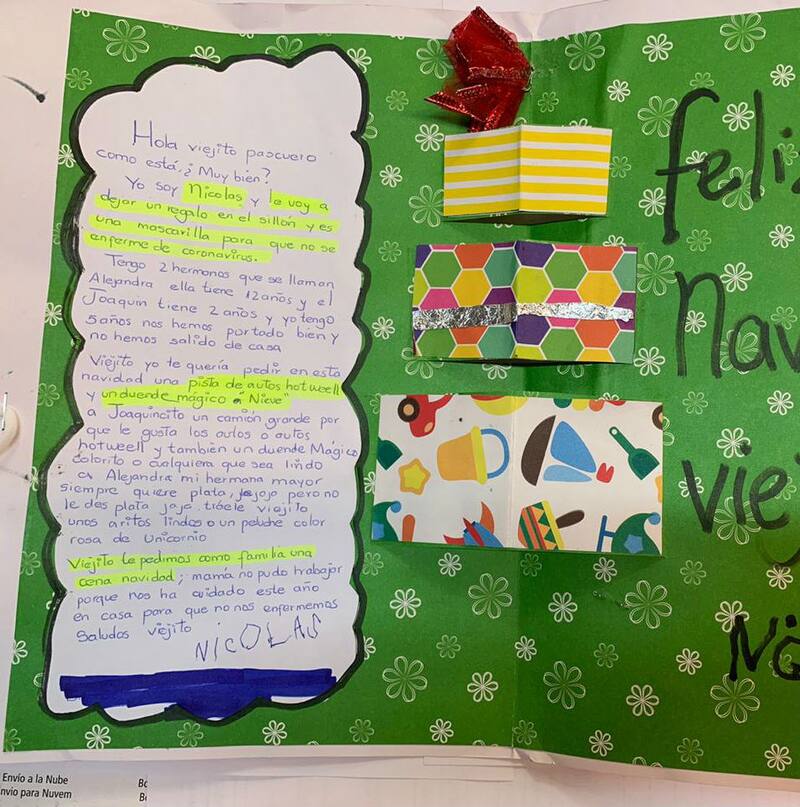 Hola viejito pascuero
como está, ¿Muy bien?
Yo soy Nicolas y le voy a
dejar un regalo en el sillón y es
una mascarilla para que no se
enferme de coronavirus.
Tengo 2 hermanos que se llaman
Alejandra ella tiene 12 años y el
Joaquin tiene 2 años y yo tengo
5 años nos hemos portado bien y
no hemos salido de casa
Viejito yo te quería pedir en esta
navidad una pista de autos hotweell
y un duende magico "Nieve"
a Joaquincito un camión grande por
que le gusta los autos o autos
hotweell y también un duende Mágico
colorito o cualquiera que sea lindo
a Alejandra mi hermana mayor
siempre quiere plata, jojojo pero no
le des plata jojo tráele viejito
unos aritos lindos o un peluche color
rosa de Unicornio
Viejito te pedimos como familia una
cena navidad; mamá no pudo trabajar
porque nos ha cuidado este año
en casa para que no nos enfermemos
Saludos viejito
NICOLAS
feliz
Nav
viej
Ni
Envío a la Nube
nvio para Nuvem
Bo
B